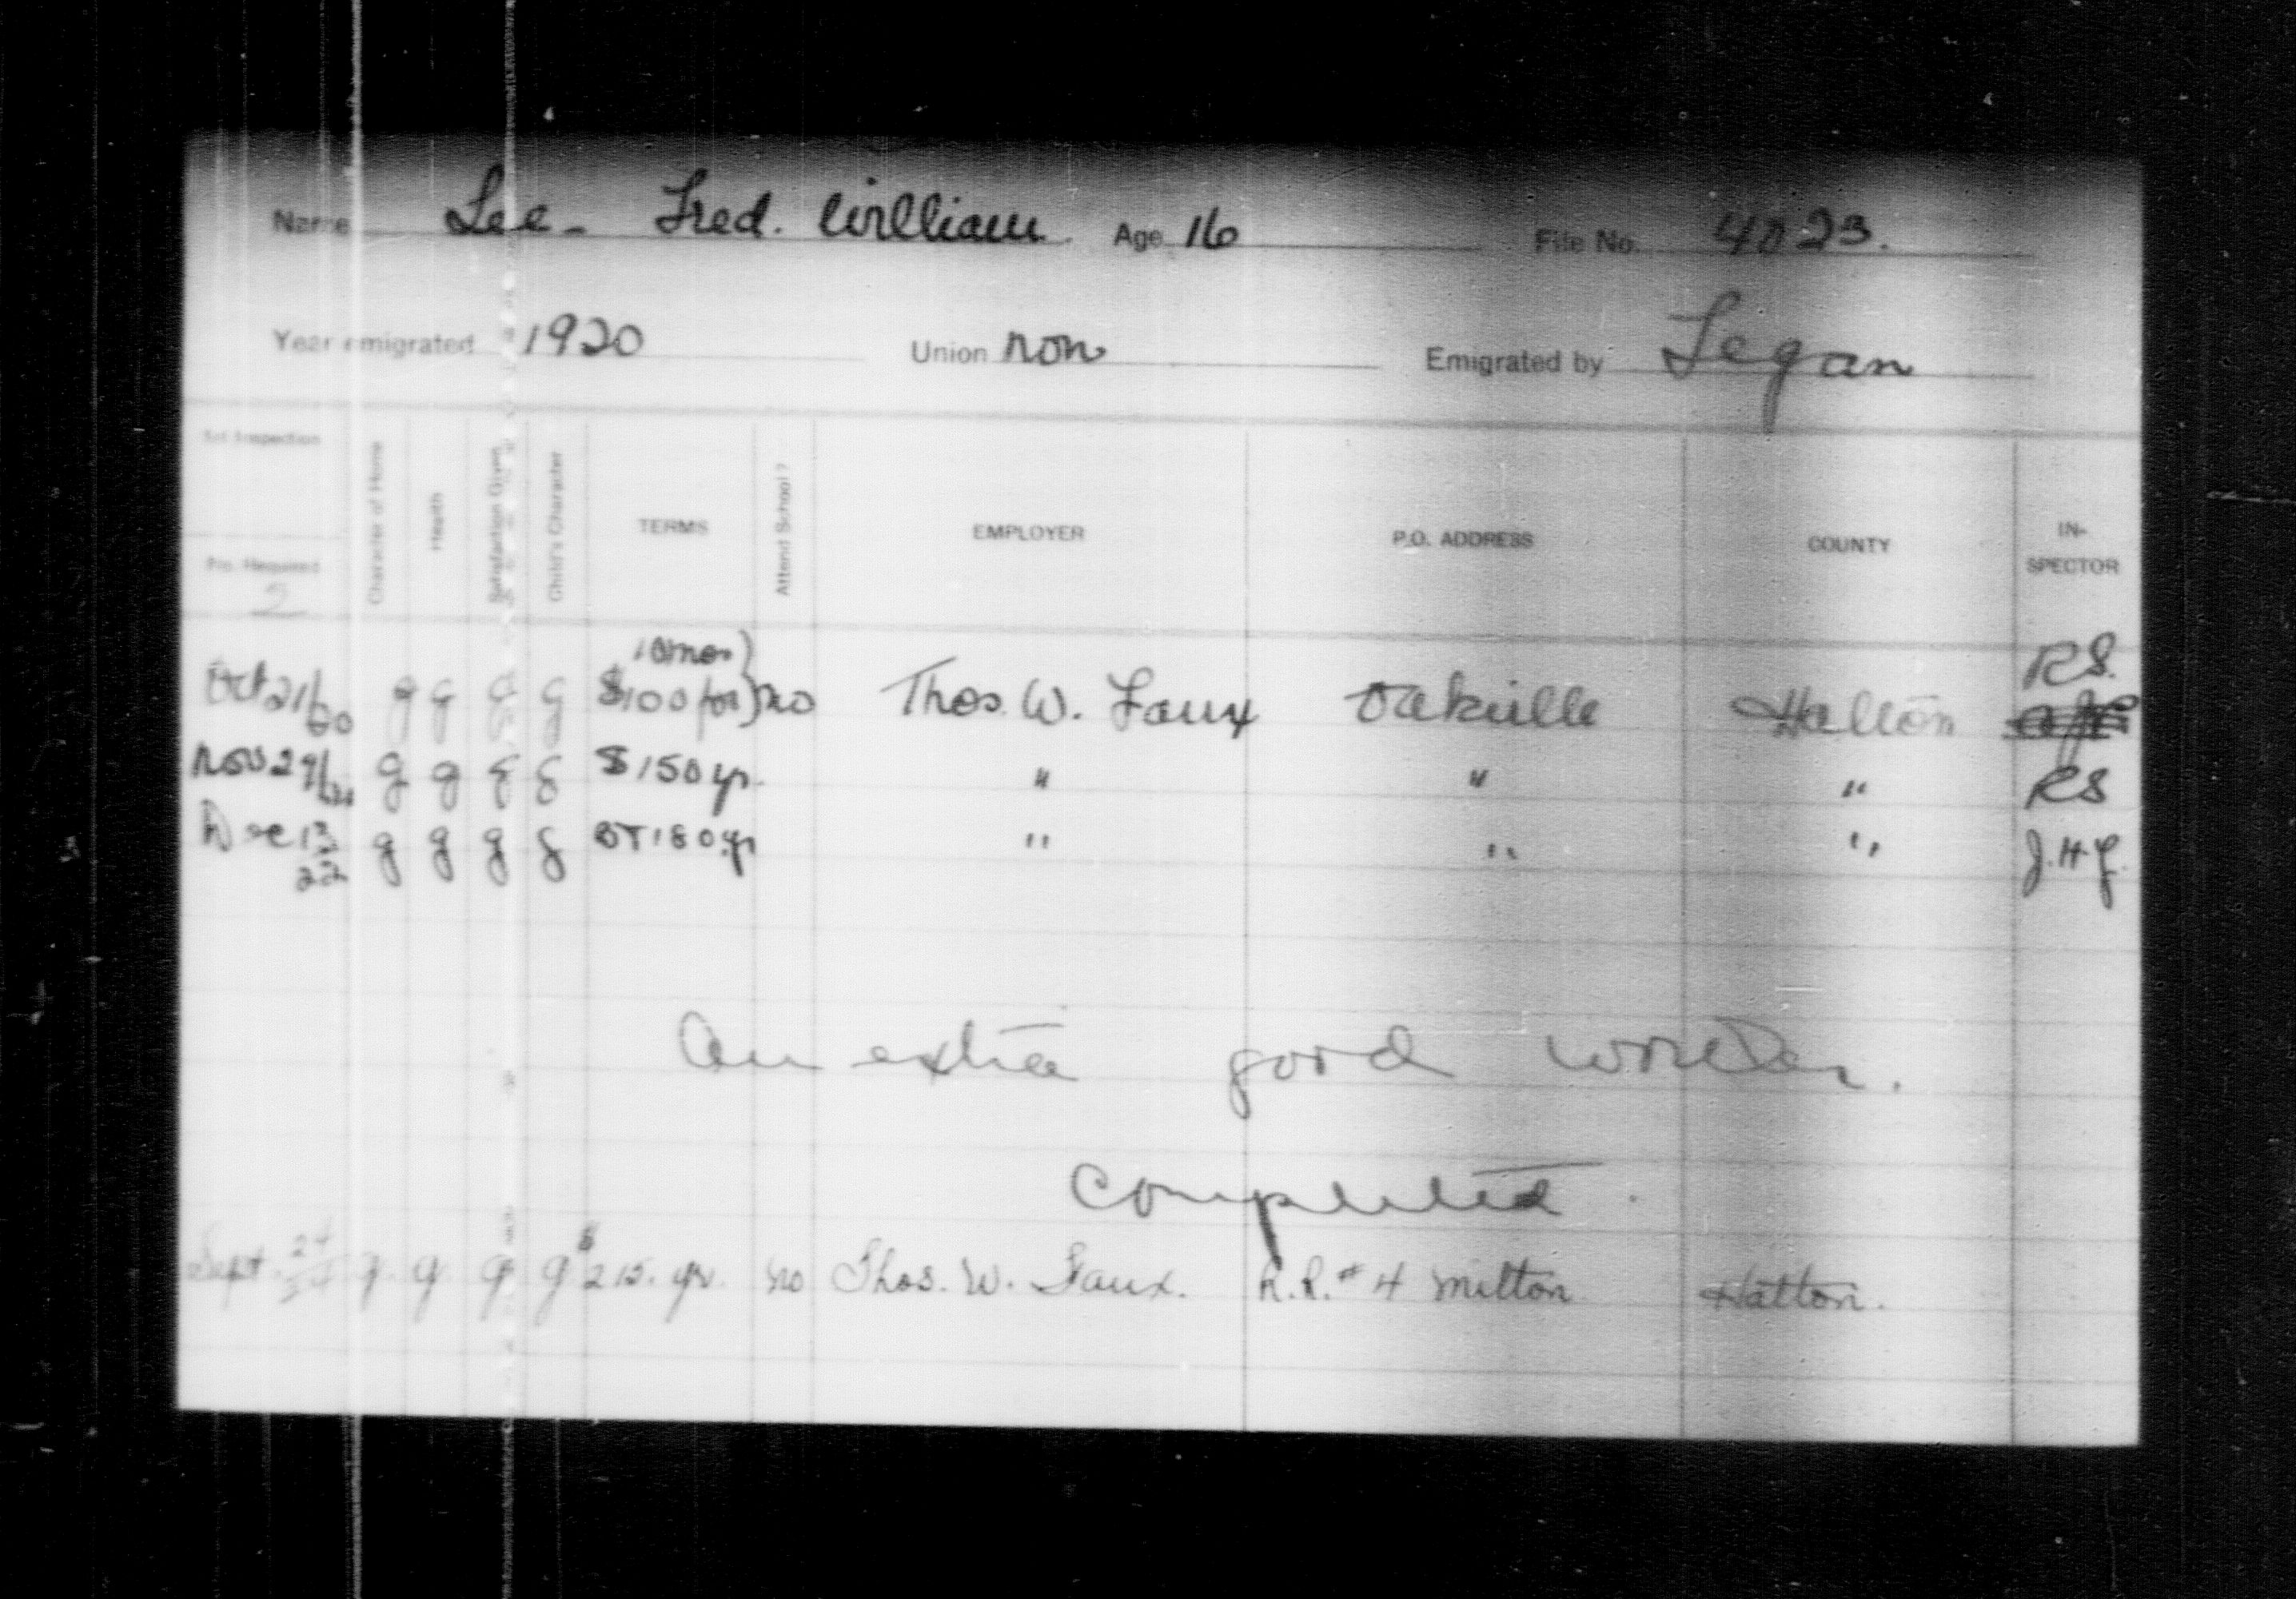 Name Lee - Fred. William Age 16 File No. 4023.
Year emigrated 1920 Union non Emigrated by Fegan
1st Inspection
No. Required
2
Character of Home Health Satisfaction Given Child's Character TERMS Attend School? EMPLOYER P.O. ADDRESS COUNTY IN-SPECTOR
10 mos
Oct 21/20 g g g g $100 for no Thos. W. Faux Oakville Halton RS.
Nov 29/ g g g g $150 yr. " " " RS
Dec 13 22 g g g g BT 180 yr " " " J.H.G.
An extra good worker.
Completed.
Sept. 24 g g g g $215. yr. no Thos. W. Faux. R.R. #4 Milton Halton.